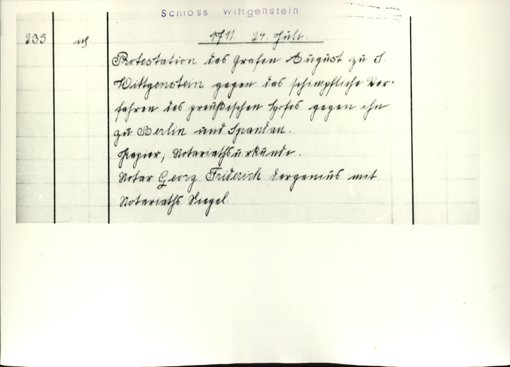 Schloss Wittgenstein
235
1711. 24. Juli.
Protestation des Grafen August zu S.
Wittgenstein gegen das schimpfliche Ver-
fahren des preußischen Hofes gegen ihn
zu Berlin und Spandau.
Papier, Notariathsurkunde.
Notar Georg Friderich Lergenius mit
Notariaths Siegel